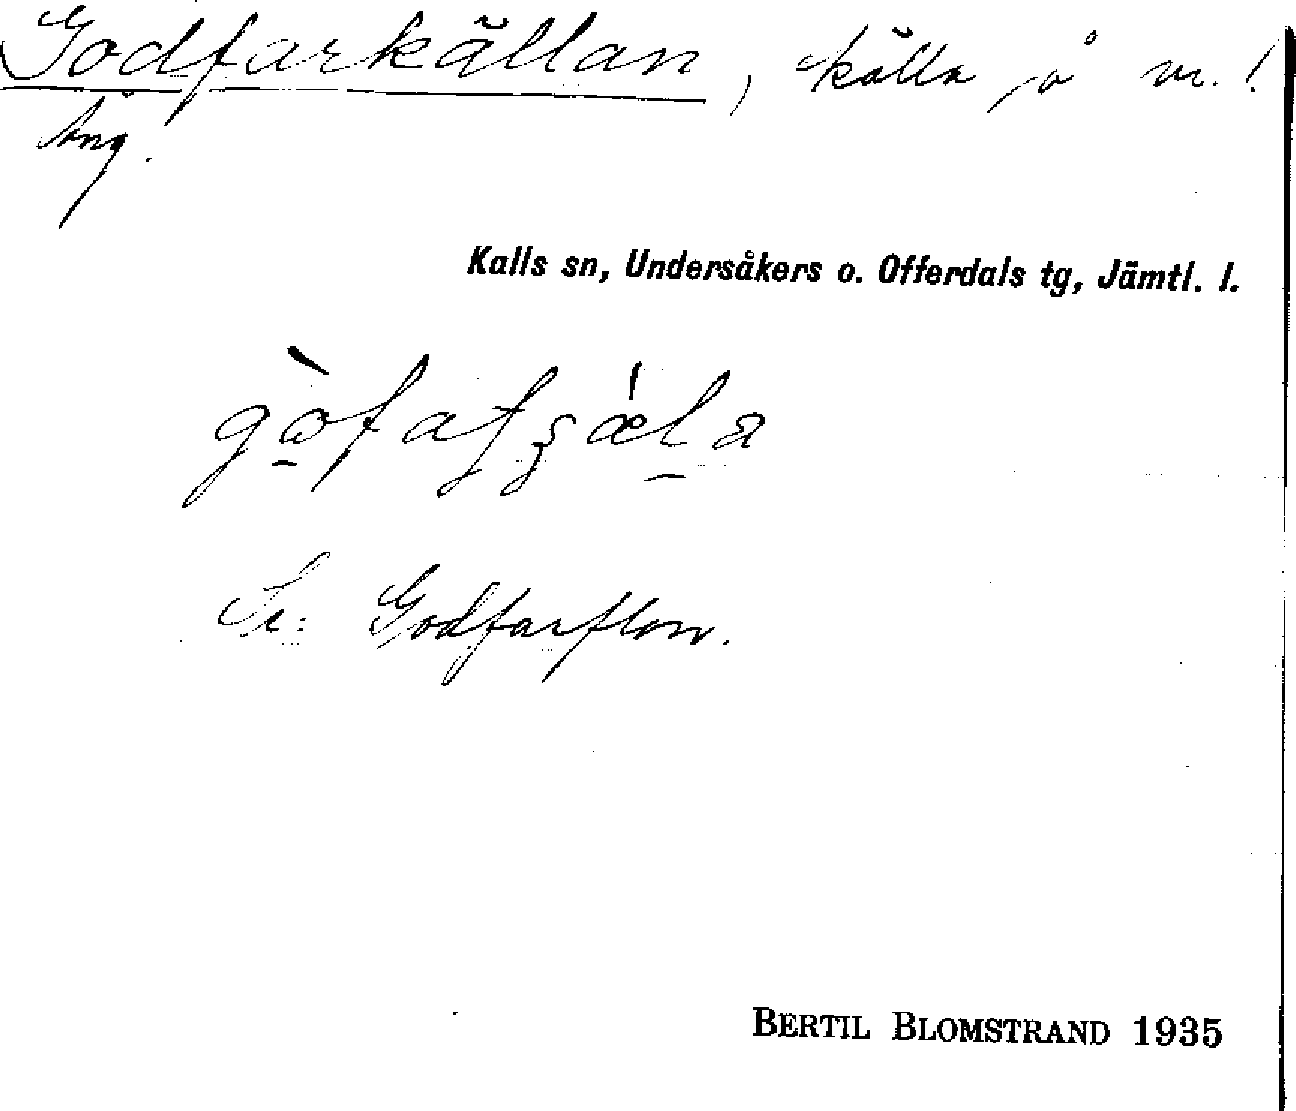 Godfarkällan, källa på nr. 1.
Äng.
Kalls sn, Undersåkers o. Offerdals tg, Jämtl. l.
Se: Godfarflon.
BERTIL BLOMSTRAND 1935